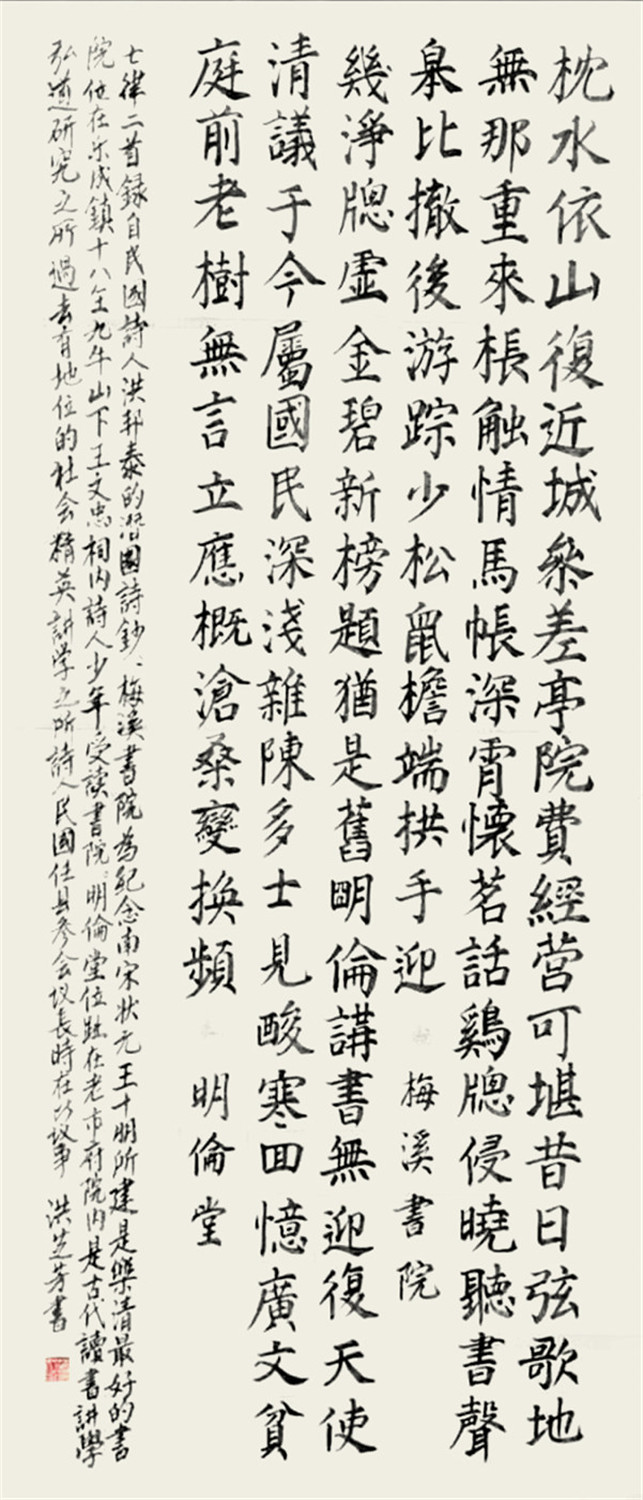 枕水依山復近城參差亭院費經營可堪昔日弦歌地
無那重來棖触情馬帳深宵懷茗話鷄牕侵曉聽書聲
皋比撤後游踪少松鼠檐端拱手迎 梅溪書院
幾淨牕虛金碧新榜題猶是舊明倫講書無迎復天使
清議于今屬國民深淺雜陳多士見酸寒回憶廣文貧
庭前老樹無言立應概滄桑變換頻 明倫堂
七律二首録自民國詩人洪邦泰的潛園詩鈔梅溪書院為紀念南宋状元王十朋所建是樂清最好的書
院位在乐成鎮十八全九牛山下王文忠相内詩人少年受读書院明倫堂位趾在老市府院内是古代讀書講學
弘道研究之所過去有地位的社会精英講学之所詩人民國任县参会议長時在此议事 洪芝芳書